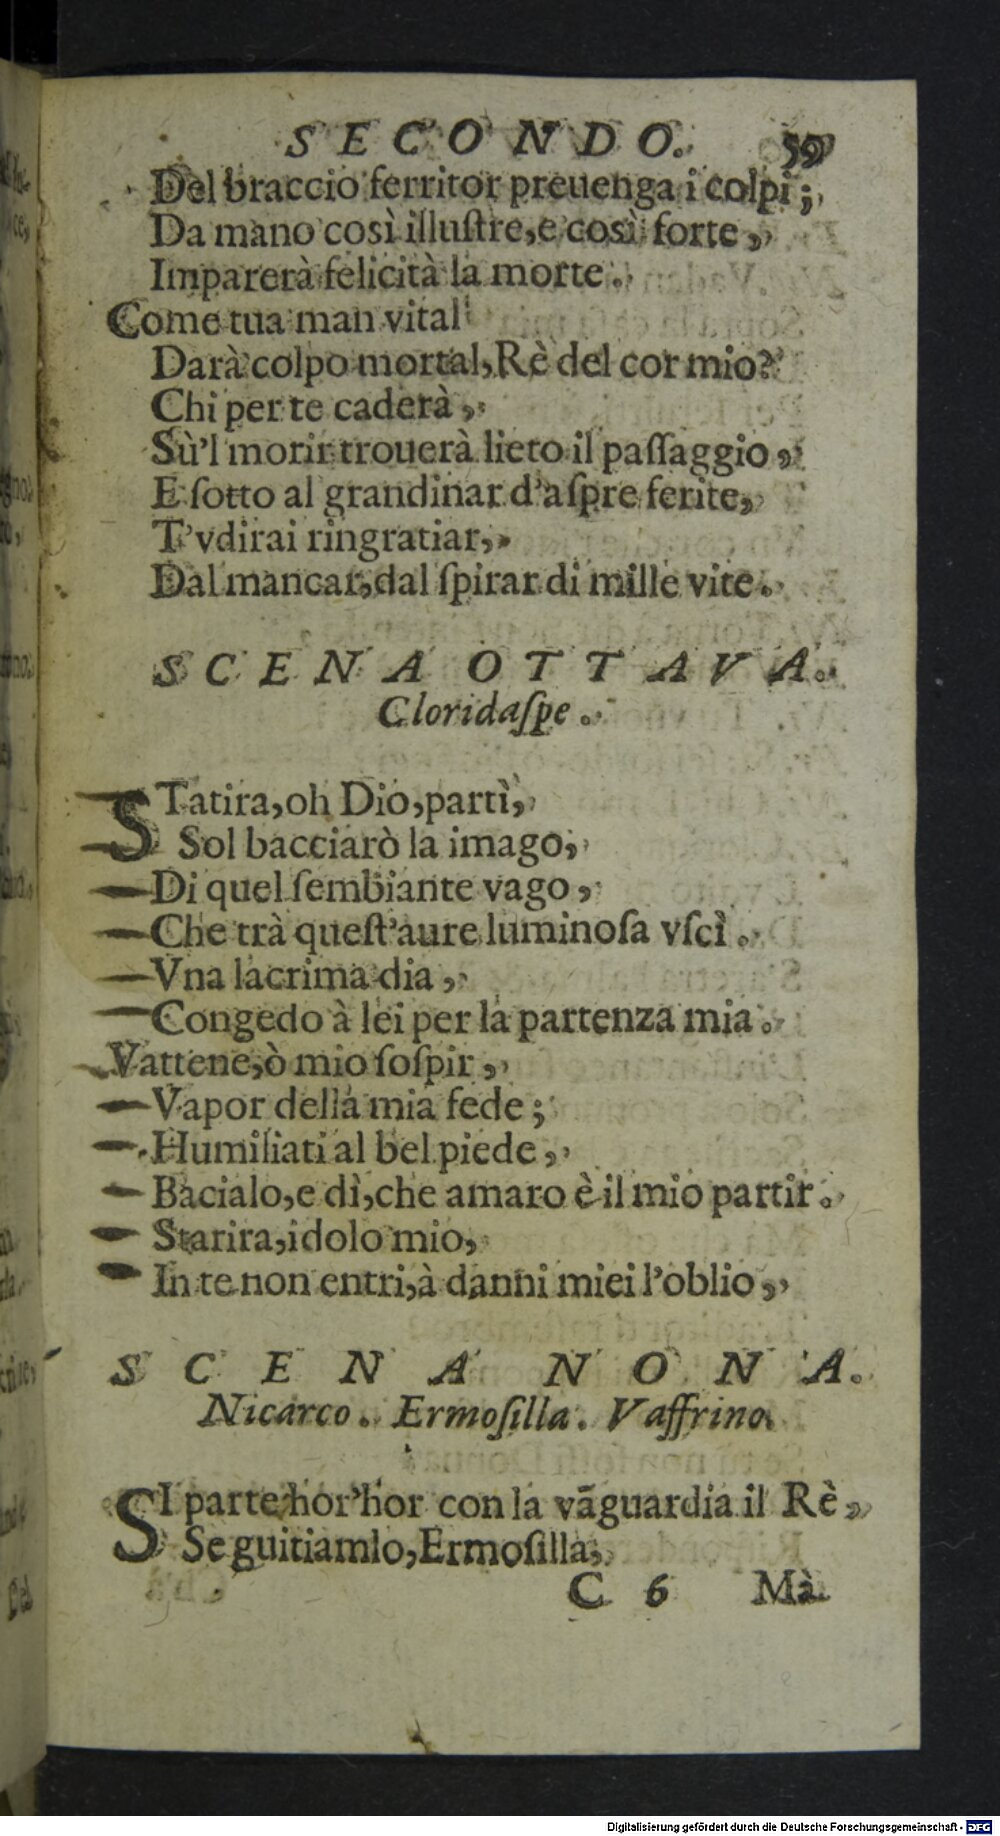 SECONDO. 59
Del braccio ferritor preuenga i colpi;
Da mano così illuſtre, e così forte,
Imparerà felicità la morte.
Come tua man vital
Darà colpo mortal, Rè del cor mio?
Chi per te caderà,
Sù'l morir trouerà lieto il paſſaggio,
E ſotto al grandinar d'aſpre ferite,
T'vdirai ringratiar,
Dal mancar, dal ſpirar di mille vite.
SCENA OTTAVA.
Cloridaſpe.
STatira, oh Dio, partì,
Sol bacciarò la imago,
Di quel ſembiante vago,
Che trà queſt'aure luminoſa vſcì.
Vna lacrima dia,
Congedo à lei per la partenza mia.
Vattene, ò mio ſoſpir,
Vapor della mia fede;
Humiliati al bel piede,
Bacialo, e dì, che amaro è il mio partir.
Starira, idolo mio,
In te non entri, à danni miei l'oblio,
SCENA NONA.
Nicarco. Ermoſilla. Vaffrino.
SI parte hor'hor con la vãguardia il Rè,
Seguitiamlo, Ermoſilla,
C 6 Mà
Digitalisierung gefördert durch die Deutsche Forschungsgemeinschaft - DFG